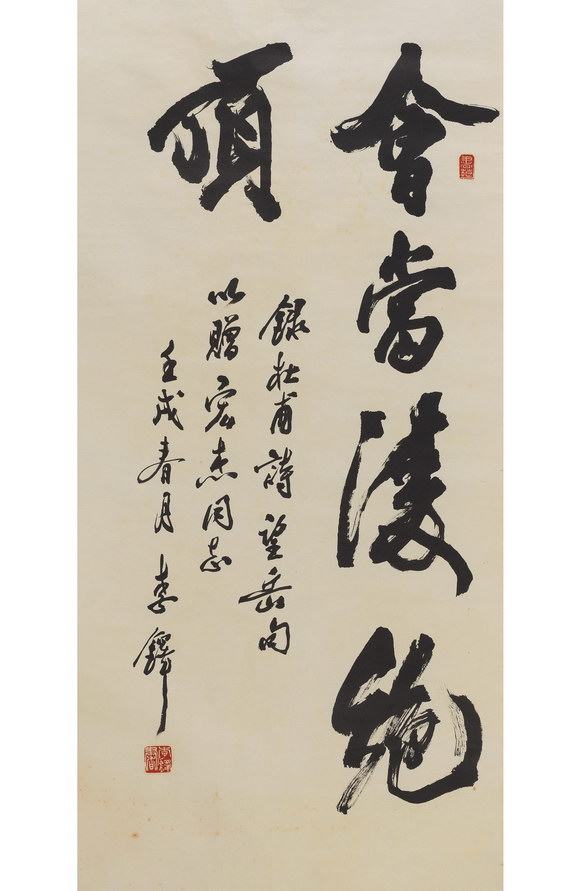 會當凌絕
頂
錄杜甫詩望岳句
以贈宏杰同志
壬戌春月 李鐸